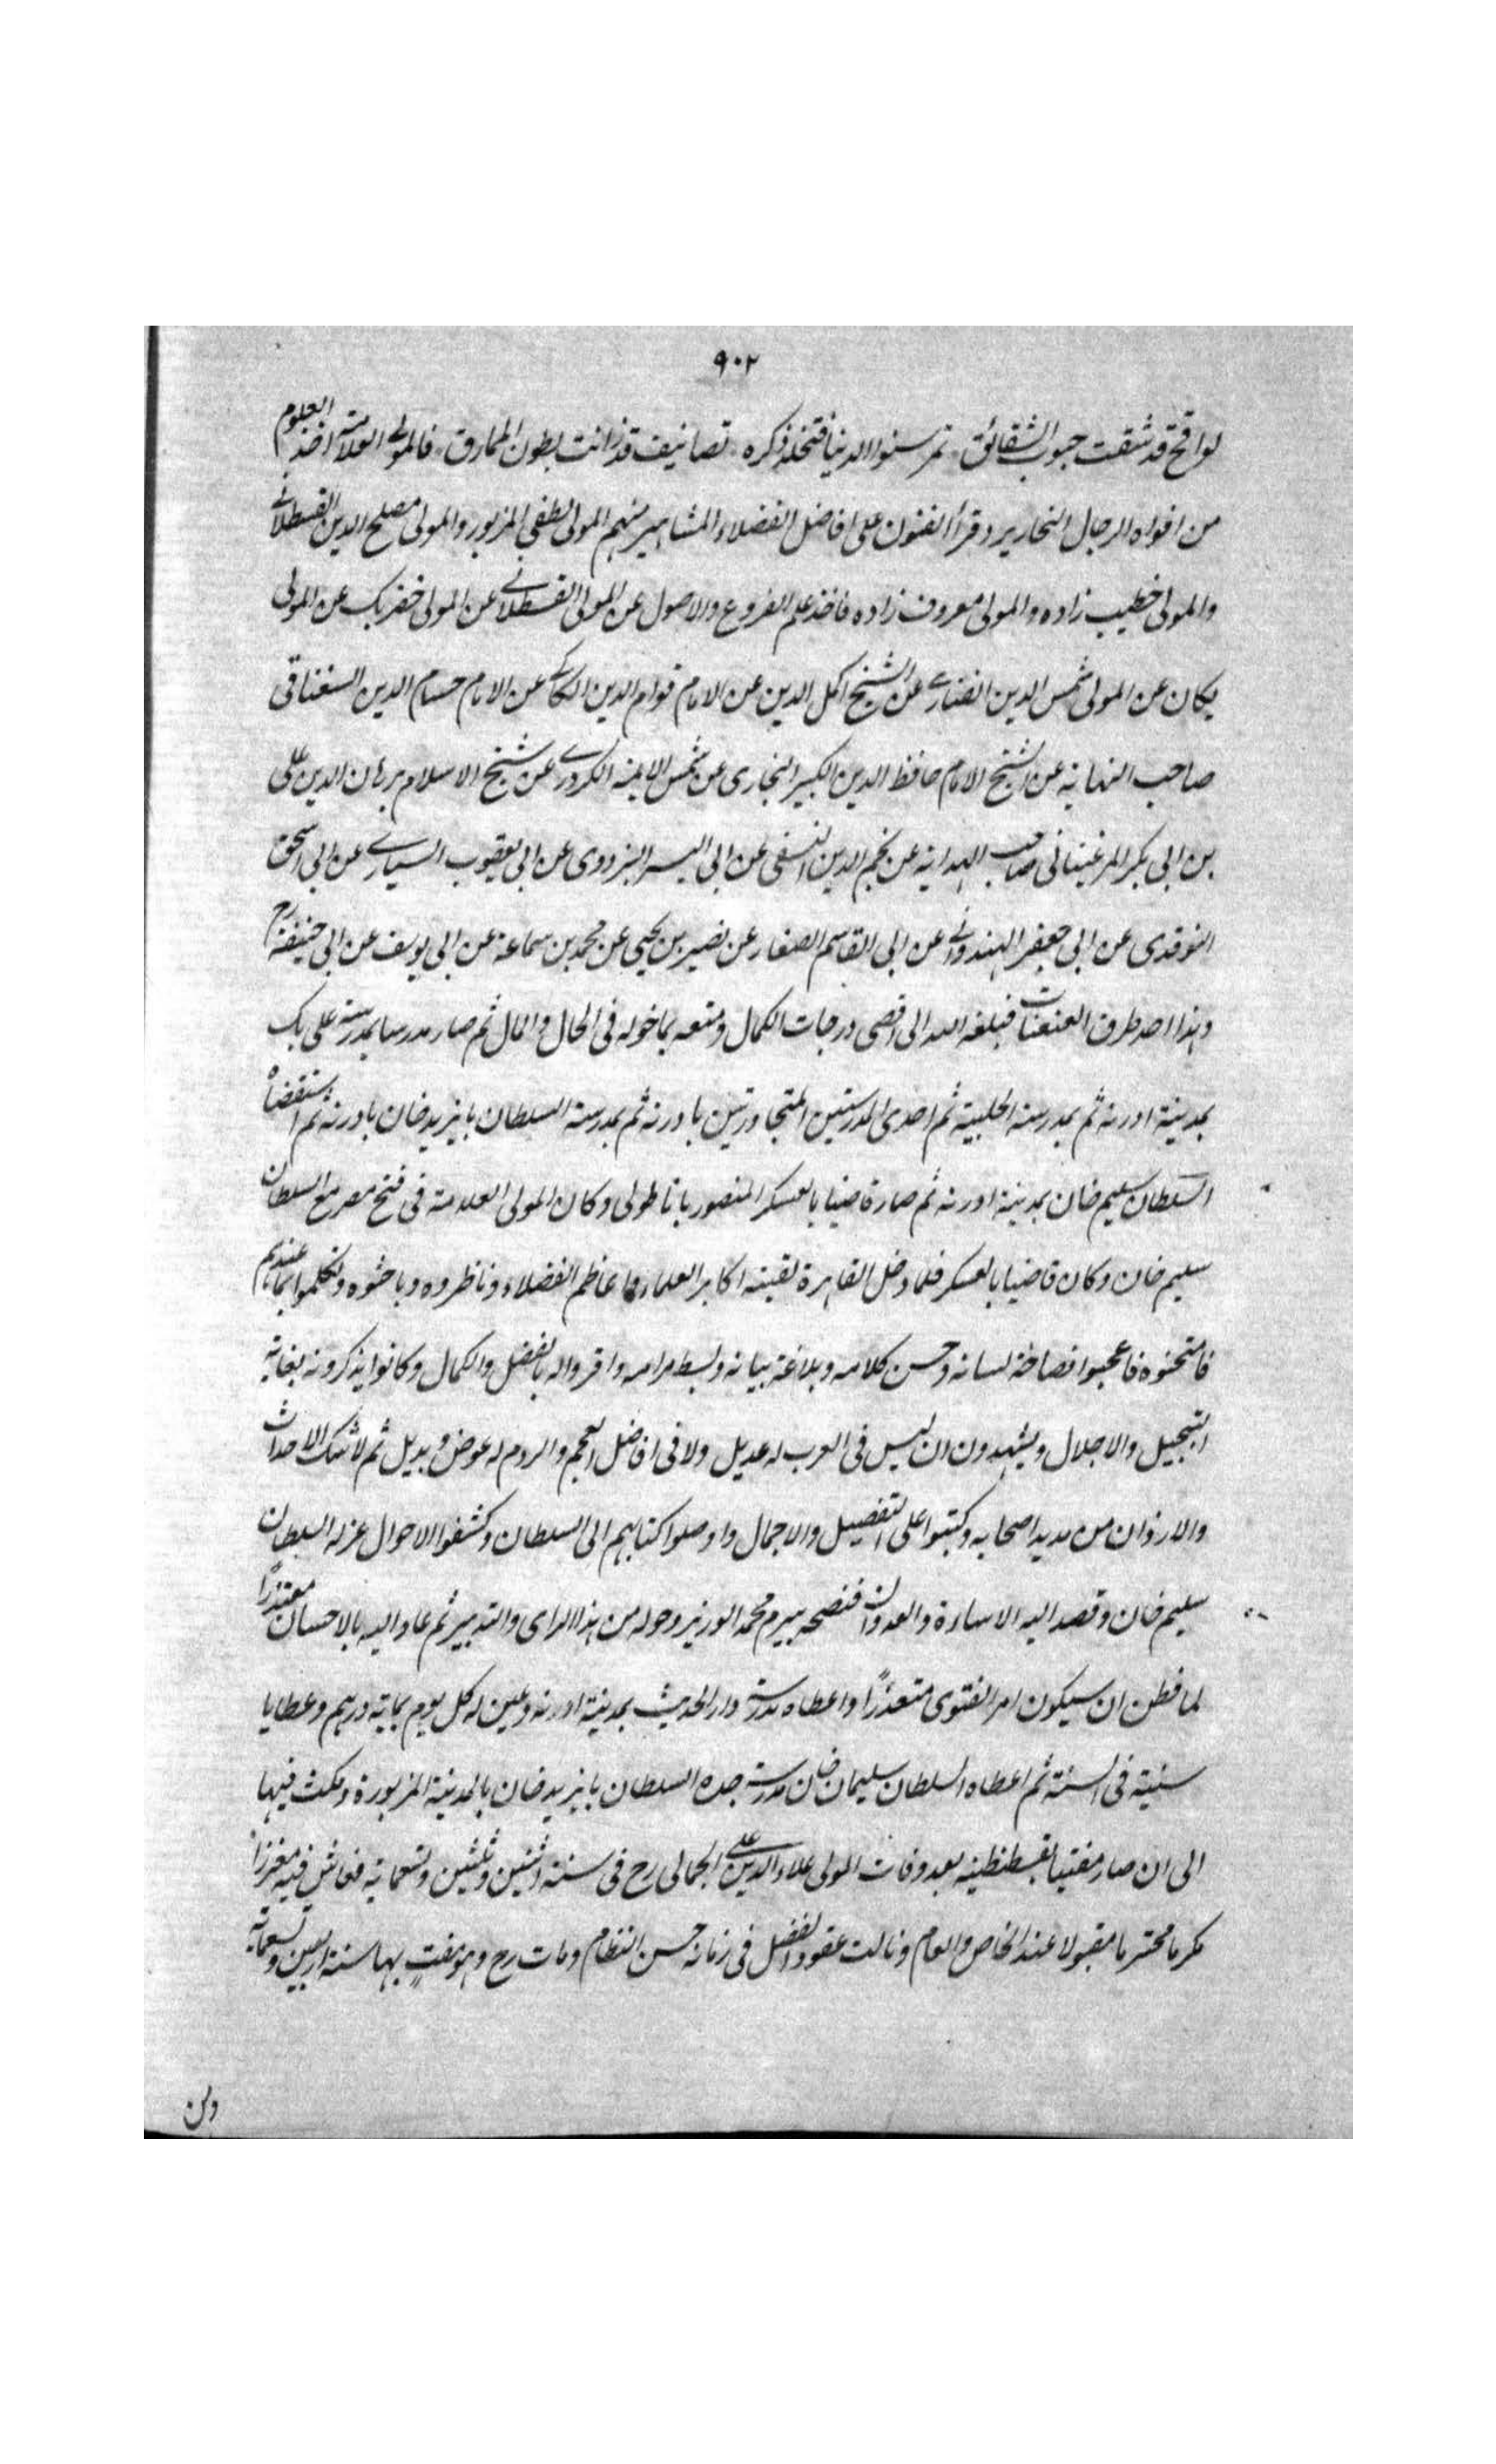 ٩٠٢
لواقح قد شقت جيوب الشقائق . تمر سنوا الدنيا فتخلد ذكره . تصانيف قد زانت بطون المهارق . فالمولى العلامة اخذ العلوم
من افواه الرجال النحارير وقرأ الفنون على افاضل الفضلاء المشاهير منهم المولى لطفى المزبور والمولى مصلح الدين القسطلانى
والمولى خطيب زاده والمولى معروف زاده فاخذ علم الفروع والاصول عن المولى القسطلانى عن المولى خضر بك عن المولى
يكان عن المولى شمس الدين الفنارى عن الشيخ اكمل الدين عن الامام قوام الدين الكاكى عن الامام حسام الدين السغناقى
صاحب النهاية عن الشيخ الامام حافظ الدين الكبير البخارى عن شمس الايمة الكردرى عن شيخ الاسلام برهان الدين على
بن ابى بكر المرغينانى صاحب الهداية عن نجم الدين النسفى عن ابى اليسر البزدوى عن ابى يعقوب السيارى عن ابى اسحق
النوقدى عن ابى جعفر الهندوانى عن ابى القاسم الصفار عن نصير بن يحيى عن محمد بن سماعة عن ابى يوسف عن ابى حنيفة رح
وهذا احد طرق العنعنات فبلغه الله الى اقصى درجات الكمال ومتعه بما خوله فى الحال والمال ثم صار مدرسا بمدرسة على بك
بمدينة ادرنه ثم بمدرسة الحلبية ثم احدى المدرستين المتجاورتين بادرنه ثم بمدرسة السلطان بايزيد خان بادرنه ثم استقضاه
السلطان سليم خان بمدينة ادرنه ثم صار قاضيا بالعسكر المنصور باناطولى وكان المولى العلامة فى فتح مصر مع السلطان
سليم خان وكان قاضيا بالعسكر فلما دخل القاهرة لقيته اكابر العلماء واعاظم الفضلاء وناظروه وباحثوه وتكلموا بما عندهم
فامتحنوه فاعجبوا فصاحة لسانه وحسن كلامه وبلاغة بيانه وبسط مرامه واقروا له بالفضل والكمال وكانوا يذكرونه بغاية
التبجيل والاجلال ويشهدون ان ليس فى العرب له عديل ولا فى افاضل العجم والروم له عوض وبديل ثم لما شك الاحداث
والارذان من مديد اصحابه وكتبوا على التفصيل والاجمال واوصلوا كتابهم الى السلطان وكشفوا الاحوال عزله السلطان
سليم خان وقصد اليه الاساءة والعدوان فنصحه بيرم محمد الوزير وحوله من هذا الراى والتدبير ثم عاد اليه بالاحسان معتذرا
لما فطن ان سيكون امر الفتوى متعذرًا واعطاه مدرسة دار الحديث بمدينة ادرنه وعين له كل يوم بماية درهم وعطايا
سنية فى السنة ثم اعطاه السلطان سليمان خان مدرسة جده السلطان بايزيد خان بالمدينة المزبورة ومكث فيها
الى ان صار مفتيا بقسطنطينية بعد وفات المولى علاء الدين على الجمالى رح فى سنة اثنتين وثلثين وتسعماية فعاش فيه معززا
مكرما محترما مقبولا عند الخاص والعام ونالت عقود الفضل فى زمانه حسن انتظام ومات رح وهو مفتٍ بها سنة اربعين وتسعماية